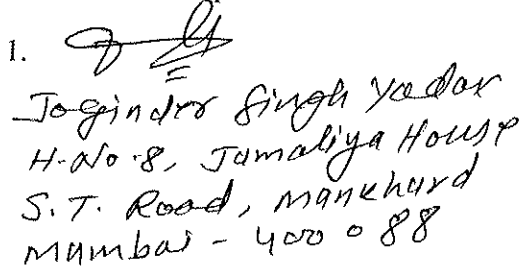 1.
Joginder Singh Yadav
H.No.8, Jamaliya House
S.T. Road, Mankhurd
Mumbai - 400 088